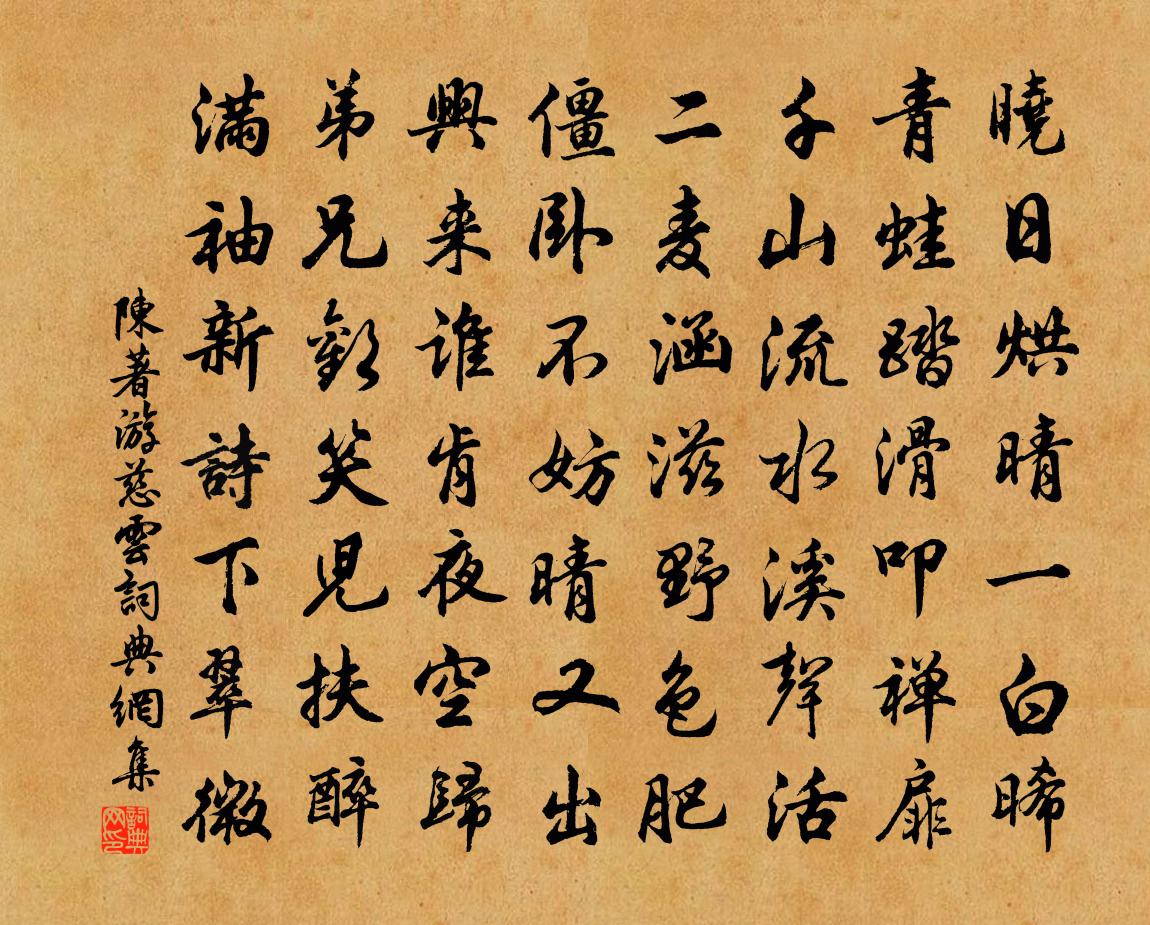 曉日烘晴一白晞
青蛙踏滑叩禅扉
千山流水溪聲活
二麦涵滋野色肥
僵卧不妨晴又出
興来谁肯夜空歸
弟兄歡笑児扶醉
满袖新詩下翠微
陳著游慈雲詞典網集
詞典
网印